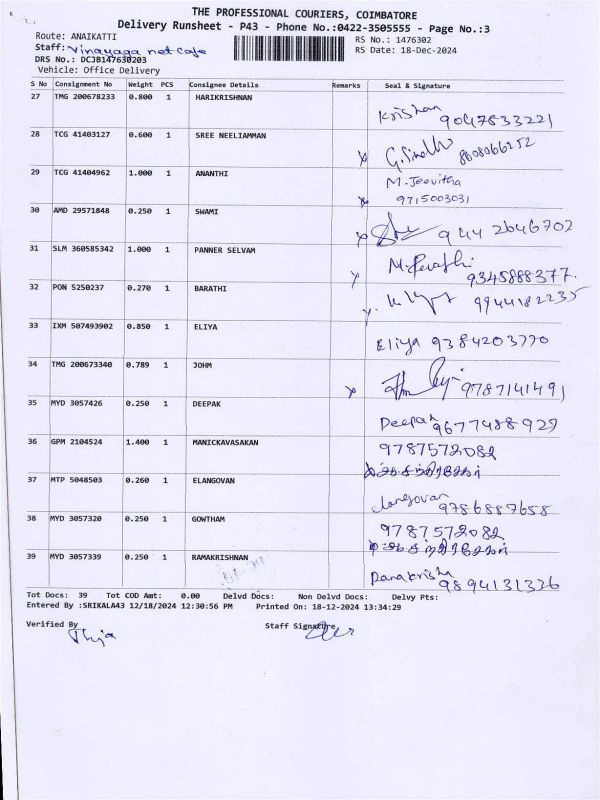 THE PROFESSIONAL COURIERS, COIMBATORE
Delivery Runsheet - P43 - Phone No.:0422-3505555 - Page No.:3
Route: ANAIKATTI
RS No.: 1476302
Staff: Vinayaga net cafe
RS Date: 18-Dec-2024
DRS No.: DCJB147630203
Vehicle: Office Delivery
S No Consignment No Weight PCS Consignee Details Remarks Seal & Signature
27 TMG 200678233 0.800 1 HARIKRISHNAN
Krishnan 9047833221
28 TCG 41403127 0.600 1 SREE NEELIAMMAN
G. Sindhu 8608066252
29 TCG 41404962 1.000 1 ANANTHI
M. Jeevitha
9715003031
30 AMD 29571848 0.250 1 SWAMI
944 2646702
31 SLM 360585342 1.000 1 PANNER SELVAM
9345888377.
32 PON 5250237 0.270 1 BARATHI
9944182235
33 IXM 507493902 0.850 1 ELIYA
Eliya 9384203770
34 TMG 200673340 0.789 1 JOHM
9787141491
35 MYD 3057426 0.250 1 DEEPAK
Deepak 9677488929
36 GPM 2104524 1.400 1 MANICKAVASAKAN
9787572082
37 MTP 5048503 0.260 1 ELANGOVAN
elangovan 9786887658
38 MYD 3057320 0.250 1 GOWTHAM
9787572082
39 MYD 3057339 0.250 1 RAMAKRISHNAN
9894131336
Tot Docs: 39 Tot COD Amt: 0.00 Delvd Docs: Non Delvd Docs: Delvy Pts:
Entered By :SRIKALA43 12/18/2024 12:30:56 PM Printed On: 18-12-2024 13:34:29
Verified By
Staff Signature